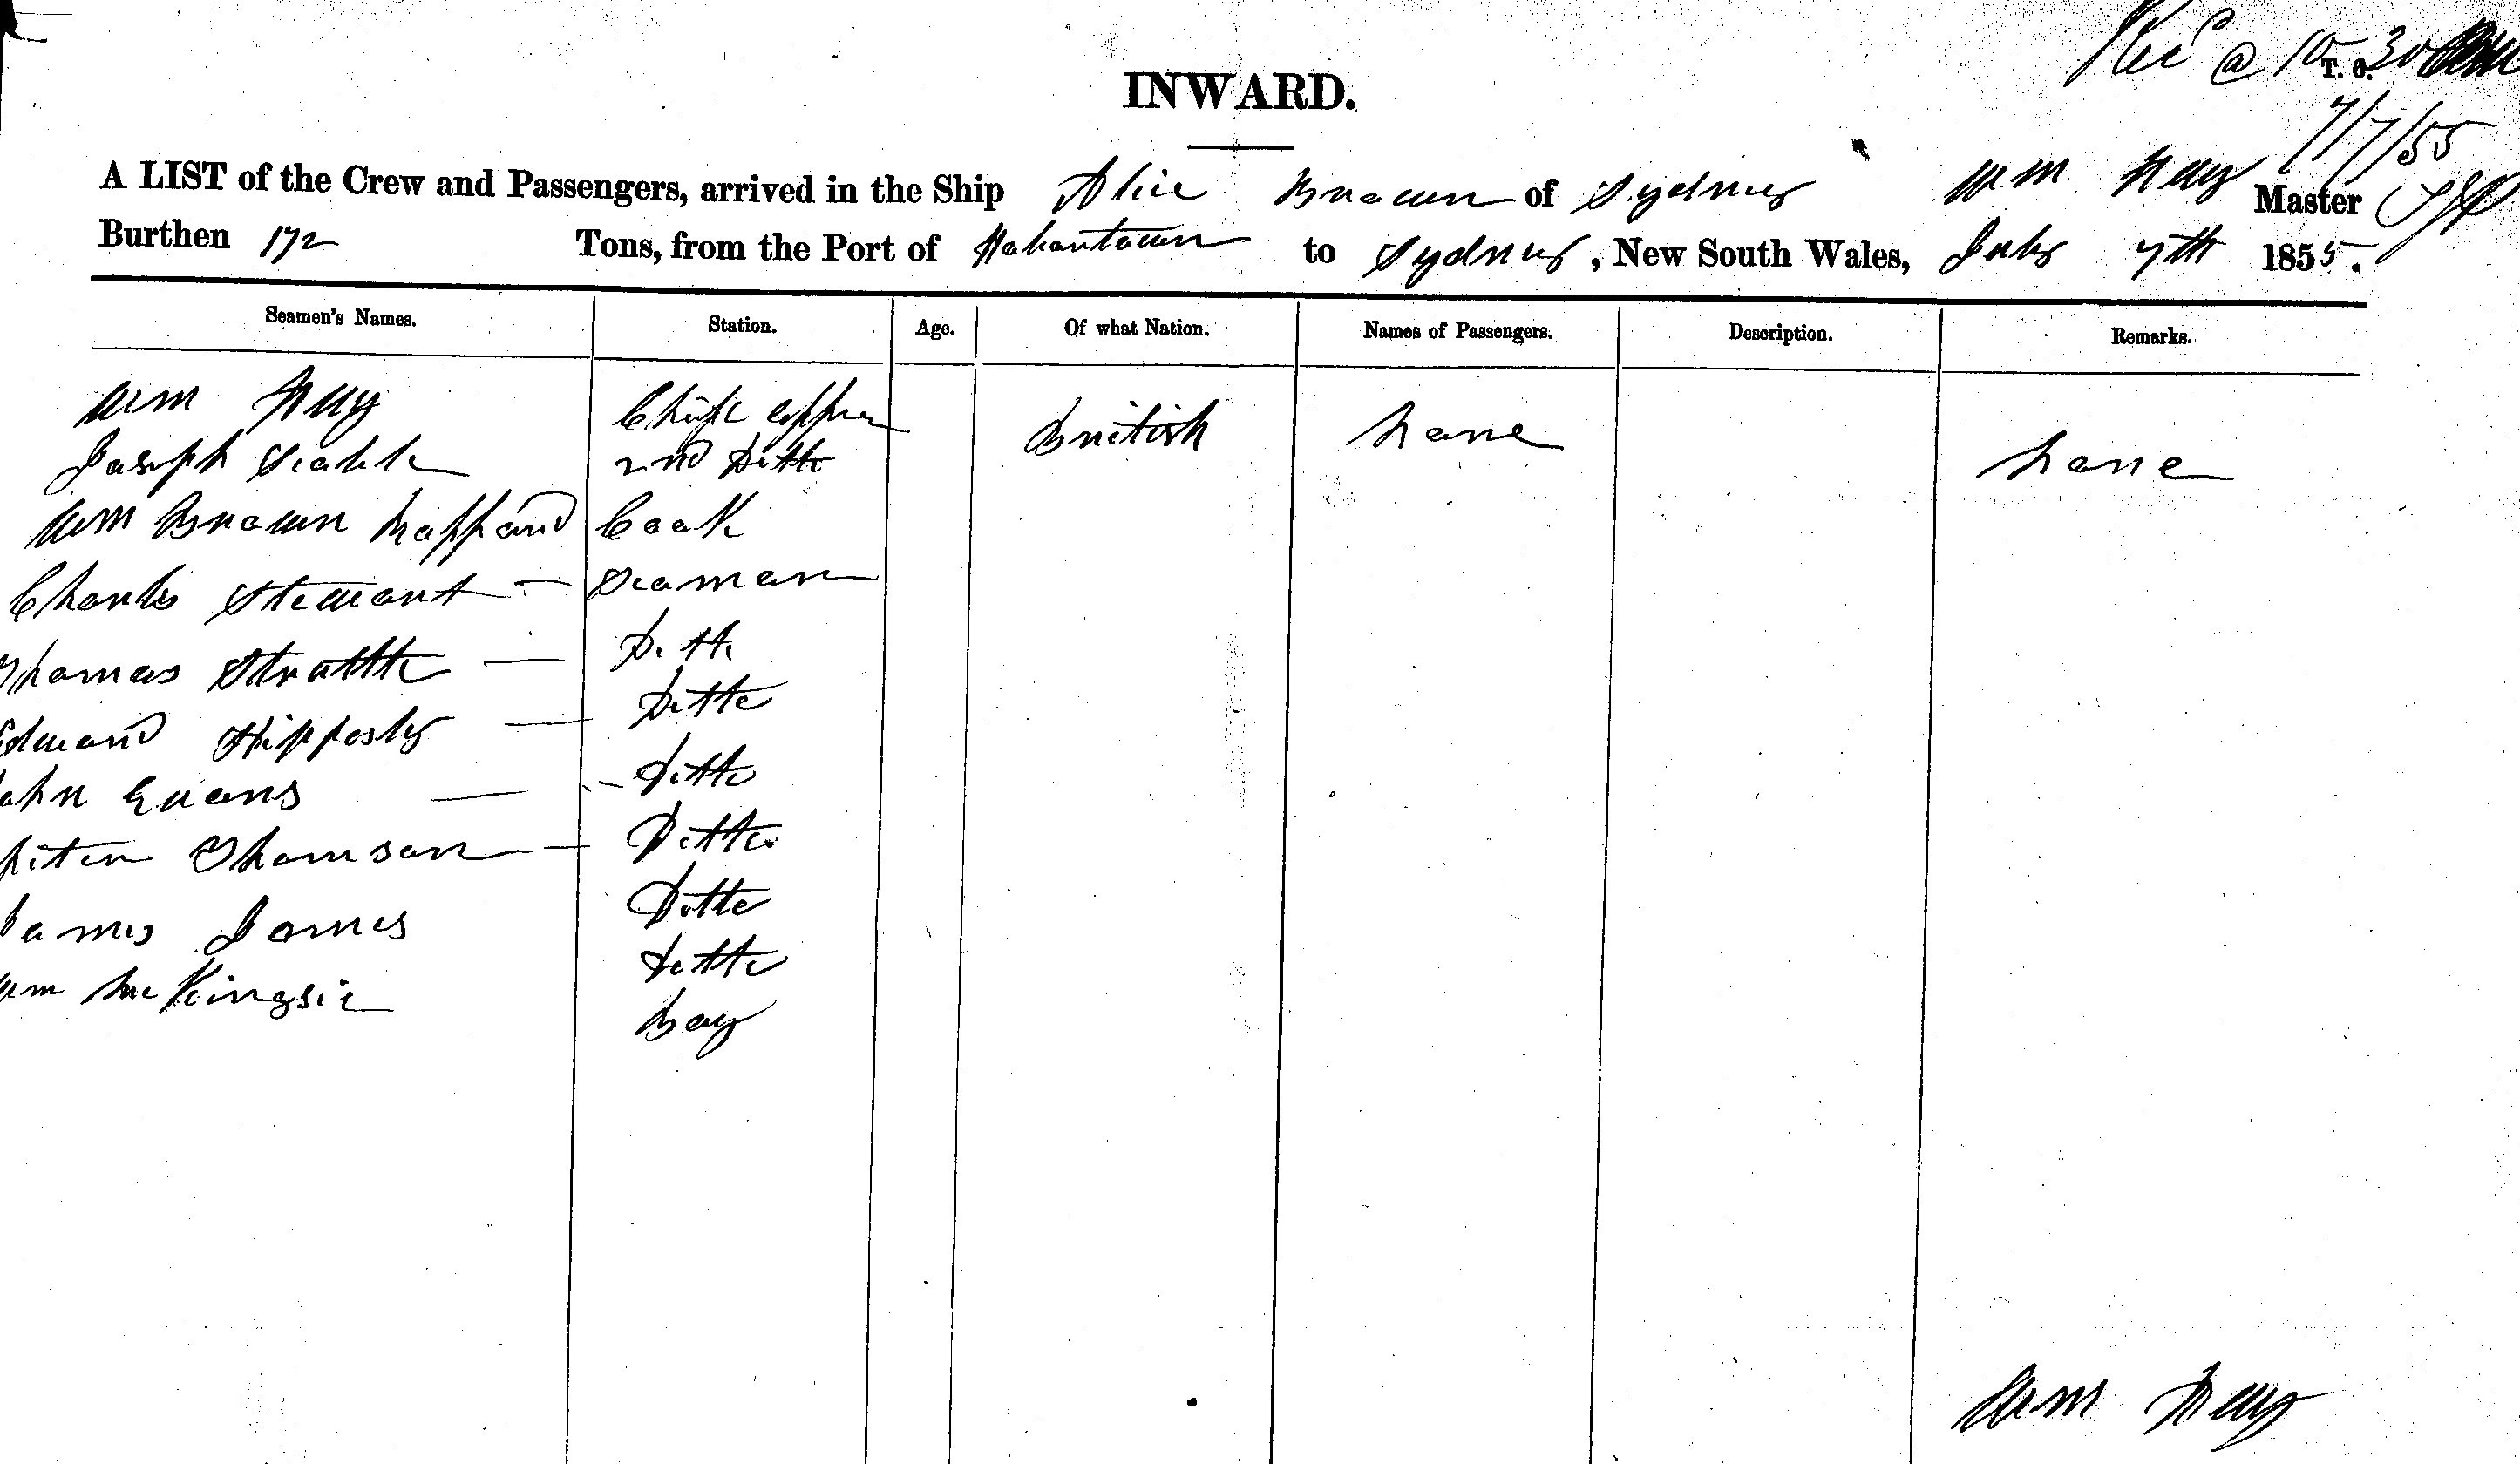 Rec^d @ 10.30
T. O.
7/7/55
INWARD.
A LIST of the Crew and Passengers, arrived in the Ship Alice Brown of Sydney Wm Hay Master
Burthen 172 Tons, from the Port of Hobartown to Sydney, New South Wales, July 7th 1855.
Seamen's Names. Station. Age. Of what Nation. Names of Passengers. Description. Remarks.
Wm Hay Chief British None
Joseph 2nd Ditto None
Wm Brown Cook
Charles Stewart — Seaman
Thomas — Ditto
Edward — Ditto
John Evans — Ditto
Peter Thomson — Ditto
James James Ditto
Wm McKingsie Ditto
Boy
Wm Hay